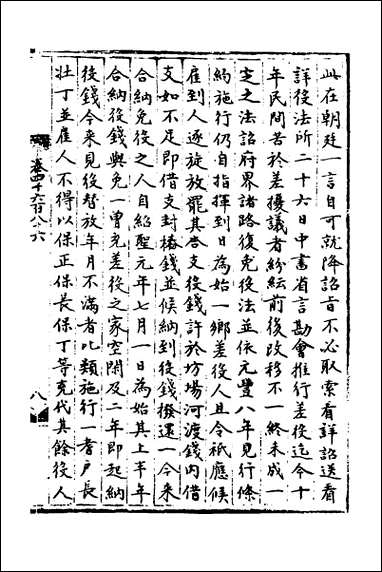 此在朝廷一言自可就降詔旨不必取索看詳詔送看
詳役法所二十六日中書省言勘會推行差役迄今十
年民間苦於差擾議者紛紜前後改移不一終未成一
定之法詔府界諸路復免役法並依元豐八年見行條
約施行仍自指揮到日為始一鄉差役人且令祇應候
雇到人逐旋放罷其合支役錢許於坊場河渡錢內借
支如不足即借支封樁錢並候納到役錢撥還一今來
合納免役之人自紹聖元年七月一日為始其上半年
合納役錢與免一曾充差役之家空閑及二年即起納
役錢今来見役替放年月不滿者比類施行一耆戶長
壯丁並雇人不得以保正保長保丁等充代其餘役人
八